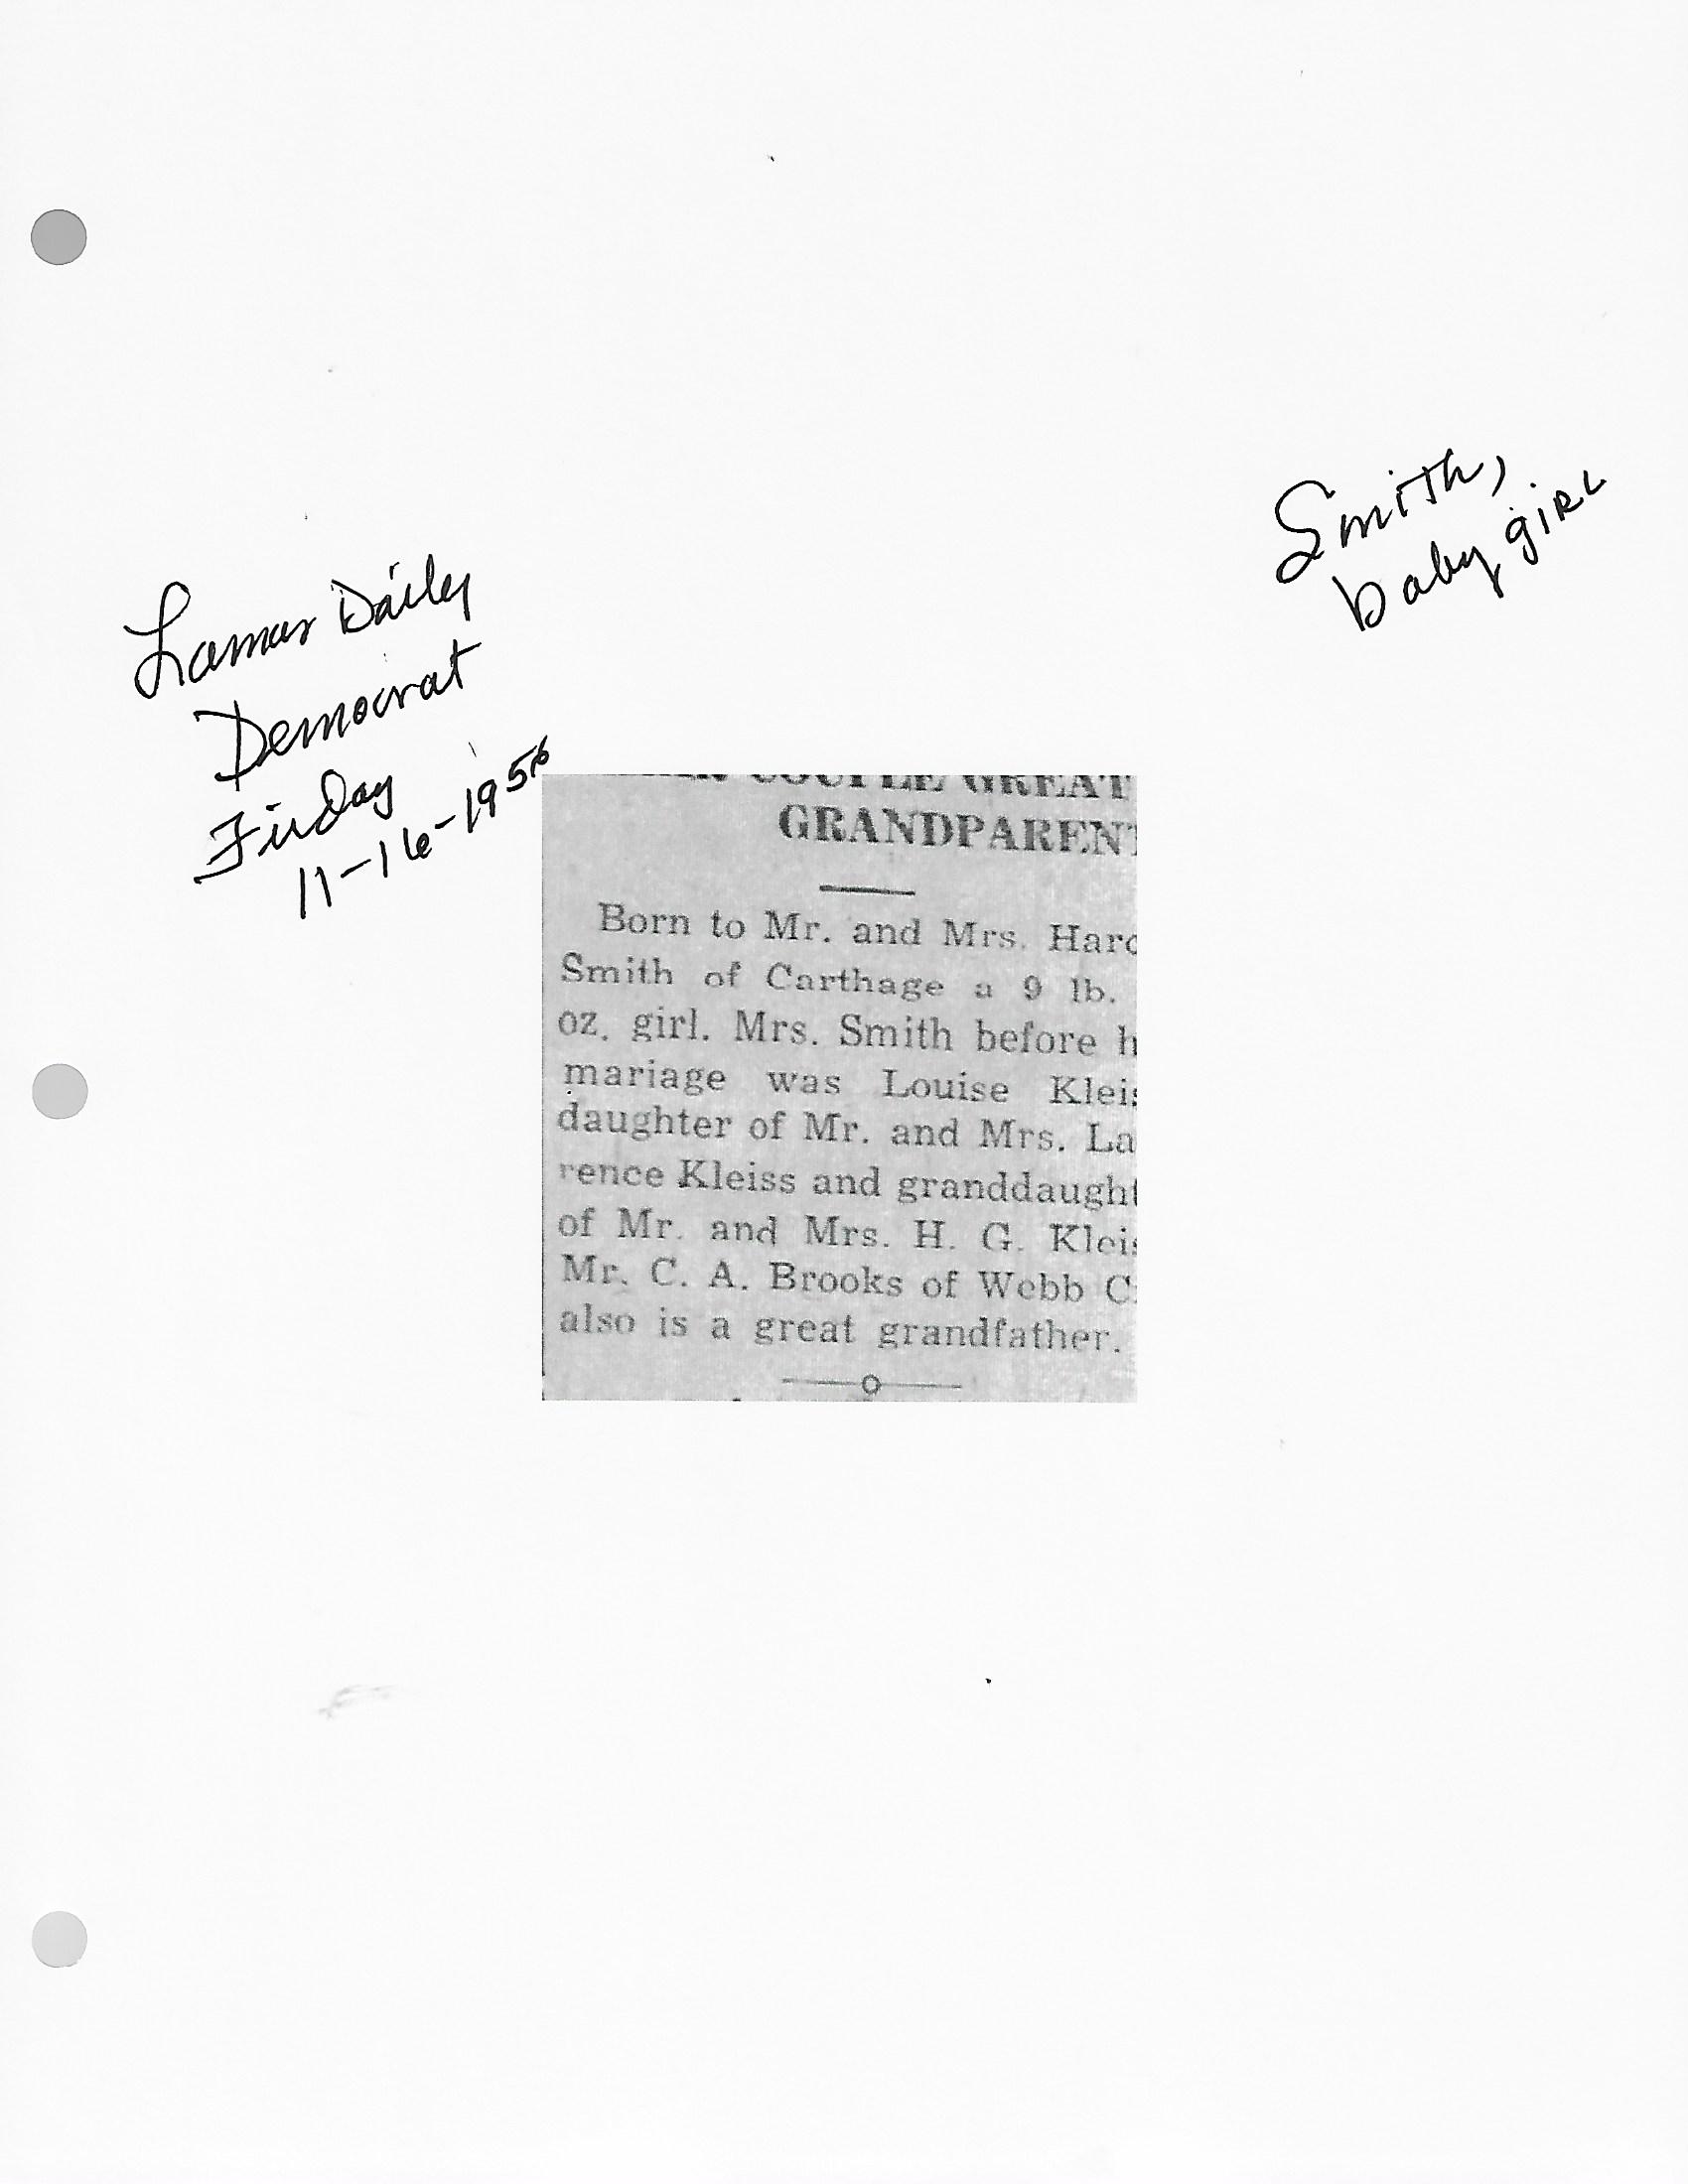 Smith,
baby girl
Lamar Daily
Democrat
Firday
11-16-1956
COUPLE GREAT
GRANDPAREN
Born to Mr. and Mrs. Haro
Smith of Carthage a 9 lb.
oz. girl. Mrs. Smith before h
mariage was Louise Kleis
daughter of Mr. and Mrs. La
rence Kleiss and granddaught
of Mr. and Mrs. H. G. Kleis
Mr. C. A. Brooks of Webb C
also is a great grandfather.